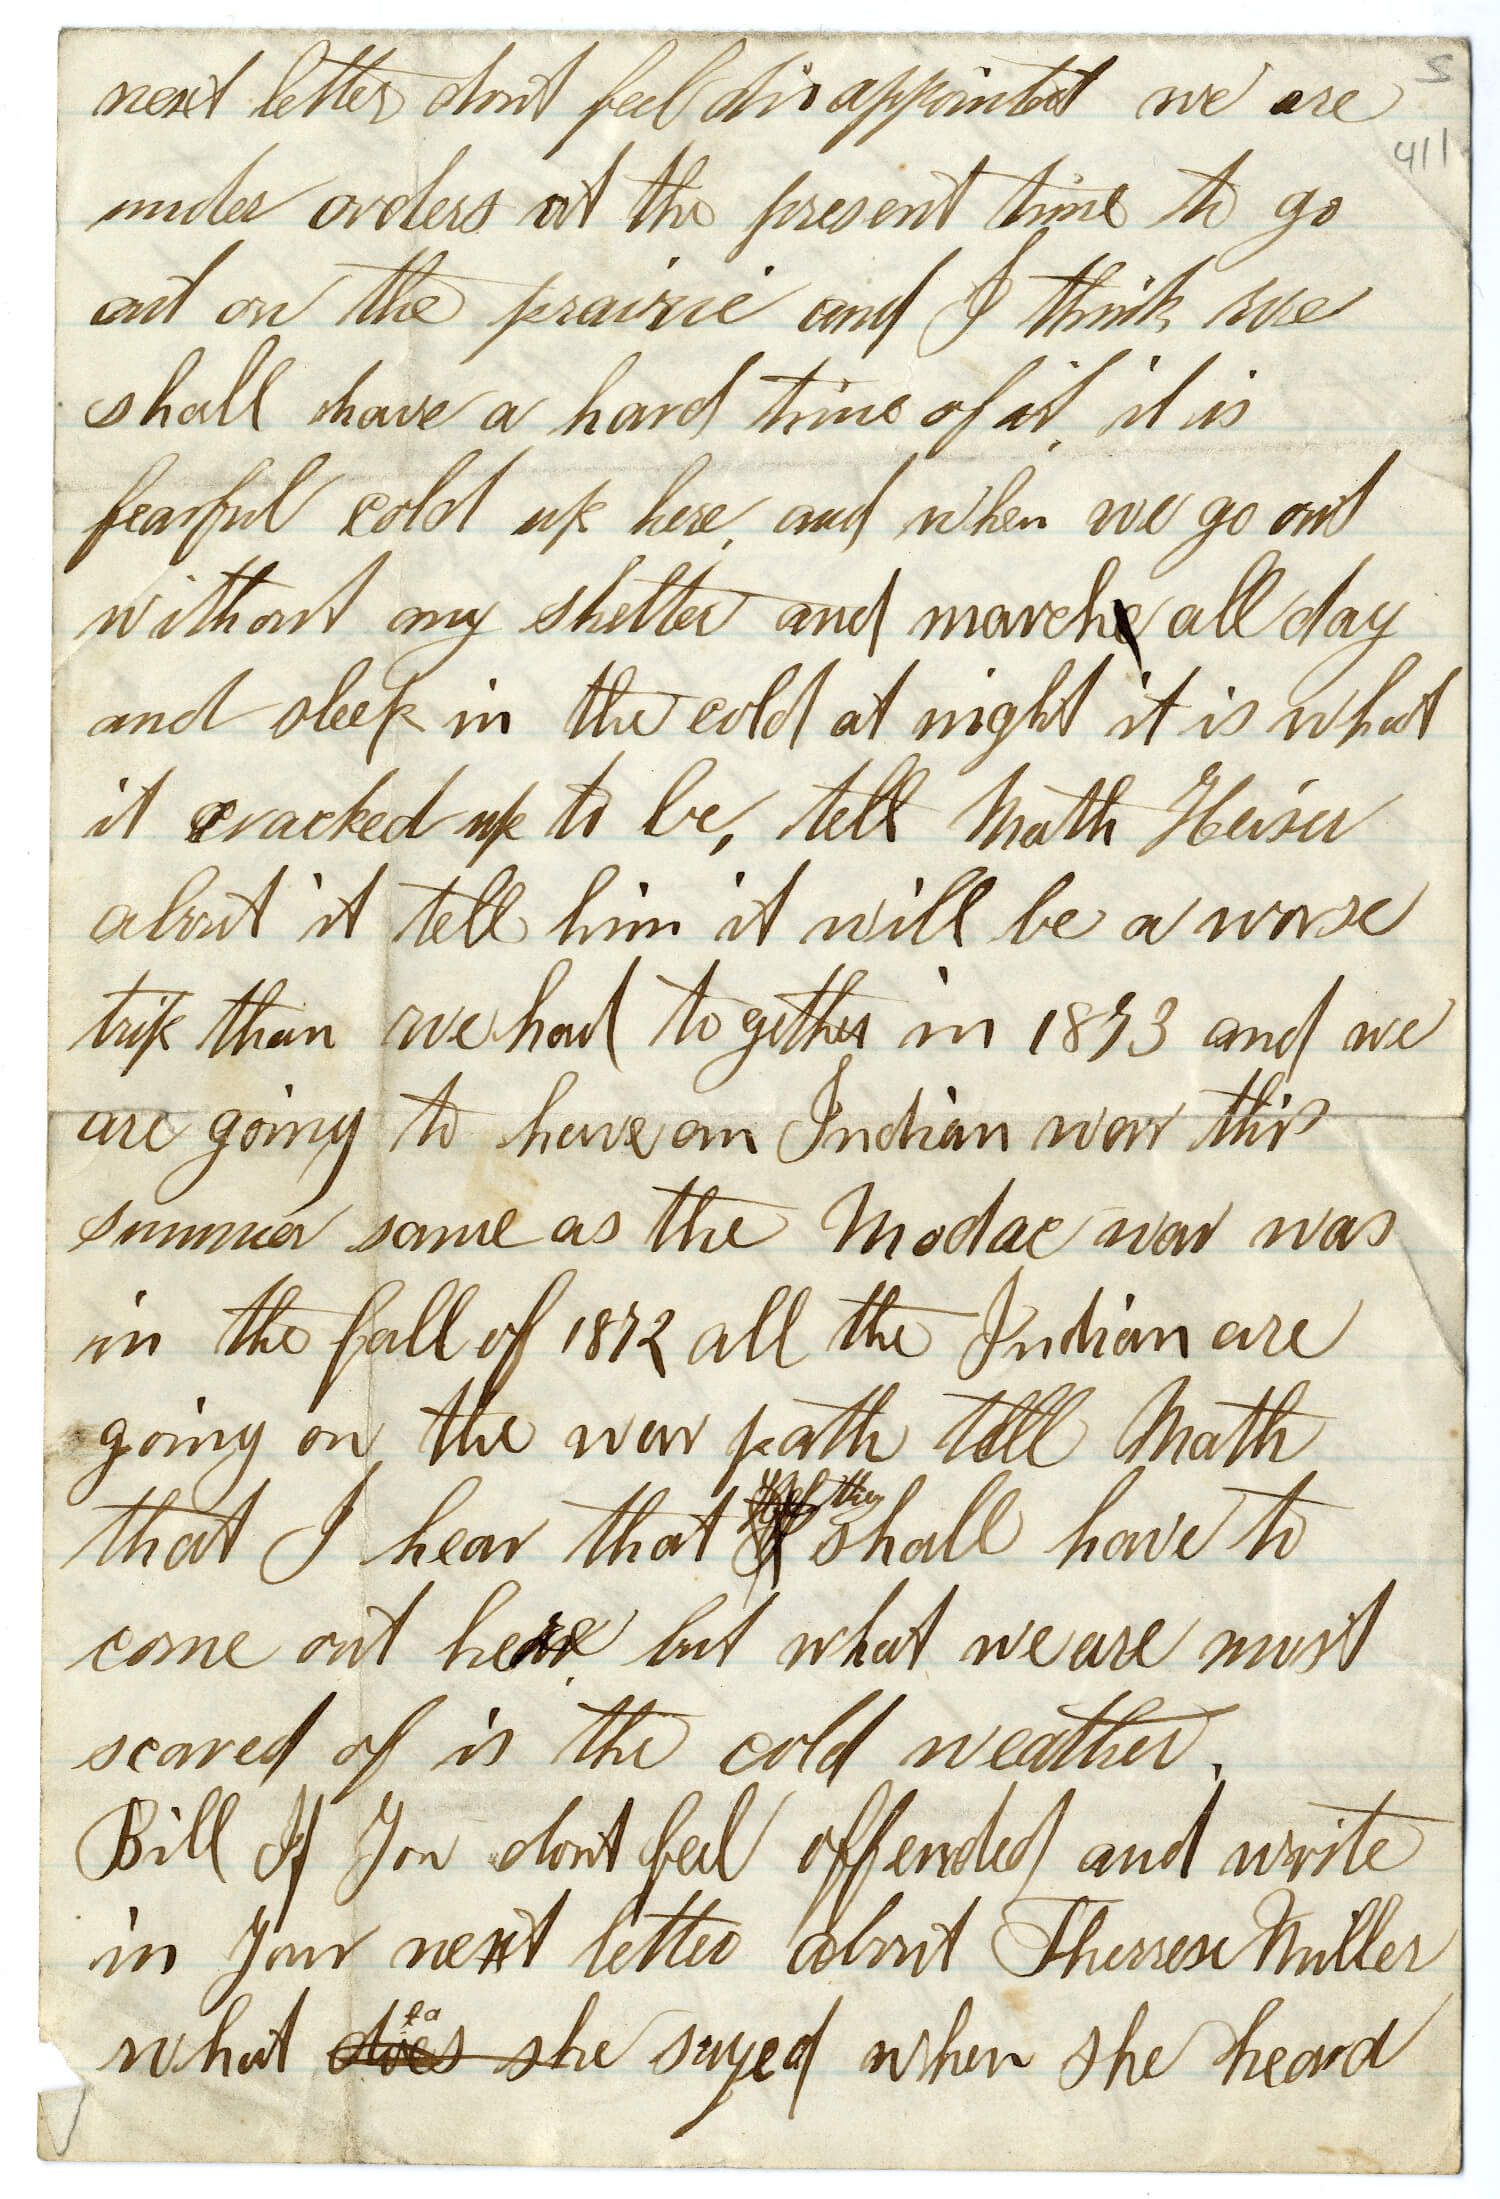 S
411
next letter dont feel disappointed we are
under orders at the present time to go
out on the prairie and I think we
shall have a hard time of it, it is
fearful cold up here, and when we go out
without any shelter and march all day
and sleep in the cold at night it is what
it cracked up to be, tell Math Heiser
about it tell him it will be a worse
trip than we had together in 1873 and we
are going to have an Indian war this
summer same as the Modac war was
in the fall of 1872 all the Indian are
going on the war path tell Math
that I hear that they shall have to
come out here but what we are most
scared of is the cold weather.
Bill If You dont feel offended and write
in Your next letter about Therrese Miller
what does she sayed when she heard